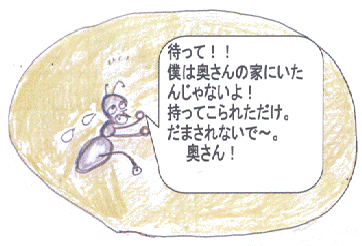 待って！！
僕は奥さんの家にいた
んじゃないよ！
持ってこられただけ。
だまされないで～。
奥さん！